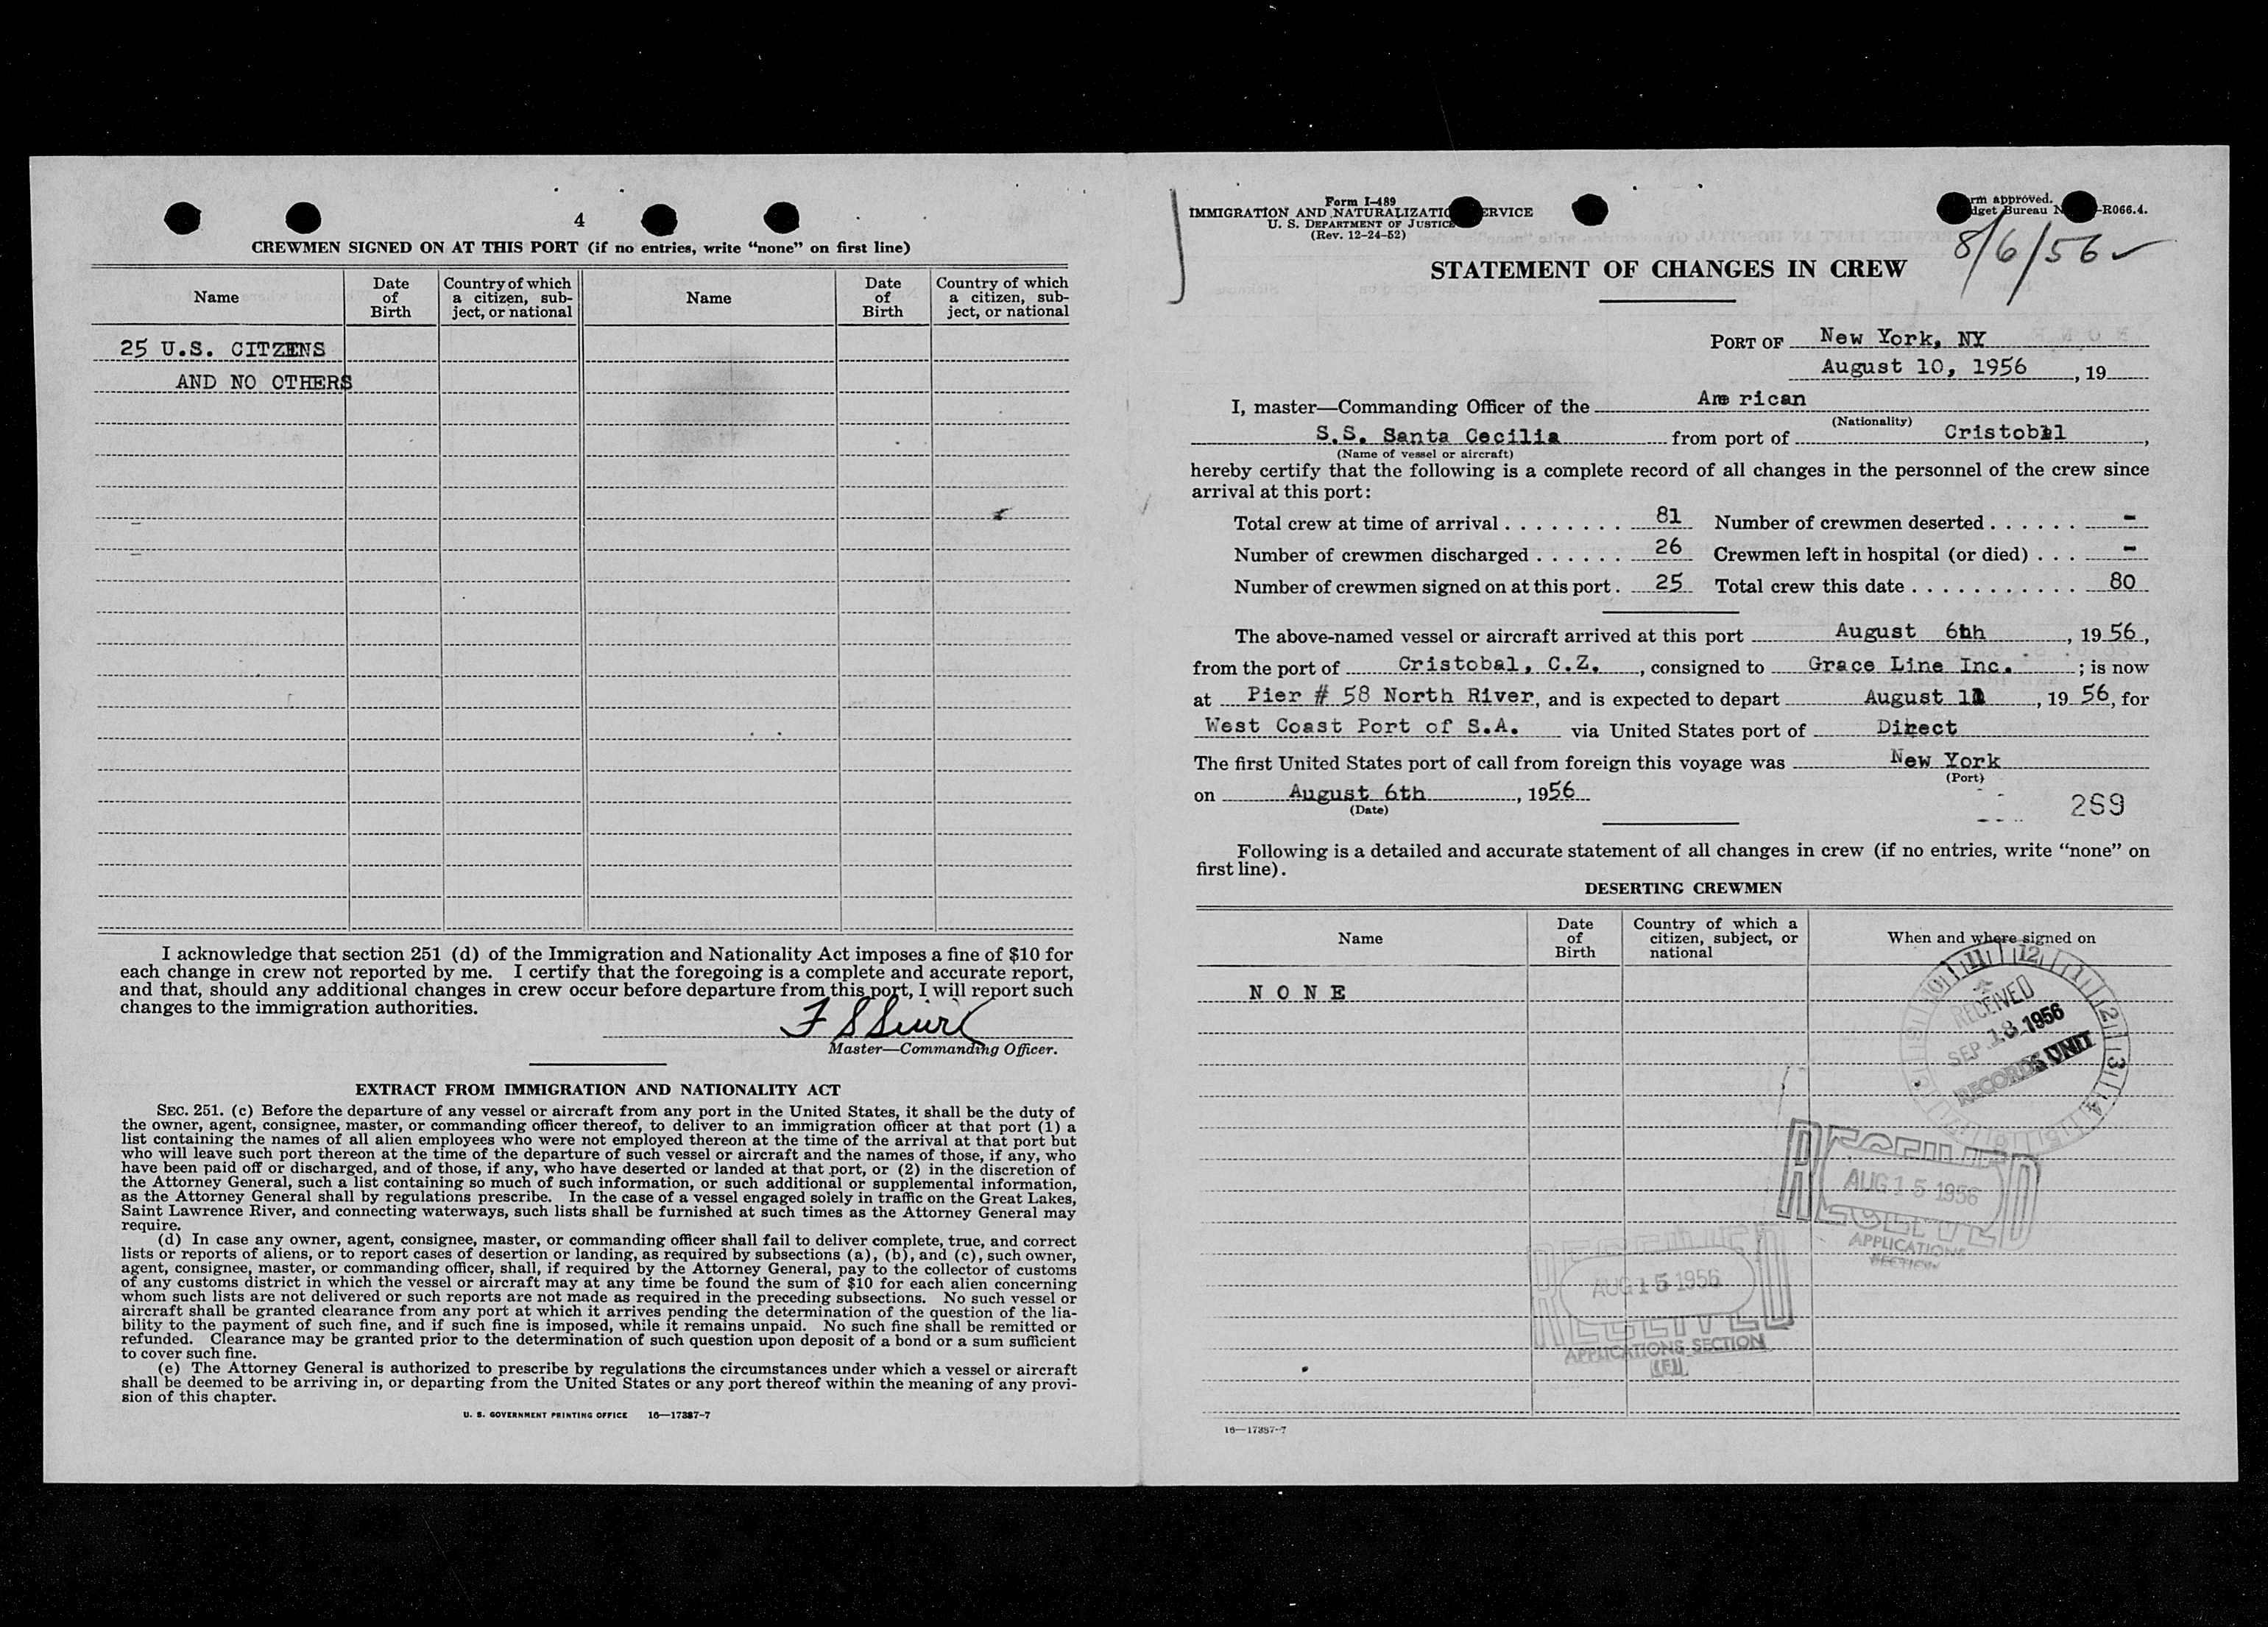 4
CREWMEN SIGNED ON AT THIS PORT (if no entries, write “none” on first line)
Name
Date of Birth
Country of which a citizen, subject, or national
Name
Date of Birth
Country of which a citizen, subject, or national
25 U.S. CITZENS
AND NO OTHERS
I acknowledge that section 251 (d) of the Immigration and Nationality Act imposes a fine of $10 for
each change in crew not reported by me. I certify that the foregoing is a complete and accurate report,
and that, should any additional changes in crew occur before departure from this port, I will report such
changes to the immigration authorities.
Master—Commanding Officer.
EXTRACT FROM IMMIGRATION AND NATIONALITY ACT
SEC. 251. (c) Before the departure of any vessel or aircraft from any port in the United States, it shall be the duty of
the owner, agent, consignee, master, or commanding officer thereof, to deliver to an immigration officer at that port (1) a
list containing the names of all alien employees who were not employed thereon at the time of the arrival at that port but
who will leave such port thereon at the time of the departure of such vessel or aircraft and the names of those, if any, who
have been paid off or discharged, and of those, if any, who have deserted or landed at that port, or (2) in the discretion of
the Attorney General, such a list containing so much of such information, or such additional or supplemental information,
as the Attorney General shall by regulations prescribe. In the case of a vessel engaged solely in traffic on the Great Lakes,
Saint Lawrence River, and connecting waterways, such lists shall be furnished at such times as the Attorney General may
require.
(d) In case any owner, agent, consignee, master, or commanding officer shall fail to deliver complete, true, and correct
lists or reports of aliens, or to report cases of desertion or landing, as required by subsections (a), (b), and (c), such owner,
agent, consignee, master, or commanding officer, shall, if required by the Attorney General, pay to the collector of customs
of any customs district in which the vessel or aircraft may at any time be found the sum of $10 for each alien concerning
whom such lists are not delivered or such reports are not made as required in the preceding subsections. No such vessel or
aircraft shall be granted clearance from any port at which it arrives pending the determination of the question of the lia-
bility to the payment of such fine, and if such fine is imposed, while it remains unpaid. No such fine shall be remitted or
refunded. Clearance may be granted prior to the determination of such question upon deposit of a bond or a sum sufficient
to cover such fine.
(e) The Attorney General is authorized to prescribe by regulations the circumstances under which a vessel or aircraft
shall be deemed to be arriving in, or departing from the United States or any port thereof within the meaning of any provi-
sion of this chapter.
U. S. GOVERNMENT PRINTING OFFICE 16—17387-7
Form I-489
IMMIGRATION AND NATURALIZATIO ERVICE
U. S. DEPARTMENT OF JUSTICE
(Rev. 12-24-52)
rm approved.
dget Bureau N -R066.4.
8/6/56
STATEMENT OF CHANGES IN CREW
PORT OF New York, NY
August 10, 1956, 19
I, master—Commanding Officer of the Ame rican
(Nationality)
S.S. Santa Cecilia from port of Cristobal,
(Name of vessel or aircraft)
hereby certify that the following is a complete record of all changes in the personnel of the crew since
arrival at this port:
Total crew at time of arrival 81 Number of crewmen deserted -
Number of crewmen discharged 26 Crewmen left in hospital (or died) -
Number of crewmen signed on at this port. 25 Total crew this date 80
The above-named vessel or aircraft arrived at this port August 6th, 1956,
from the port of Cristobal, C.Z., consigned to Grace Line Inc.; is now
at Pier # 58 North River, and is expected to depart August 11, 19 56, for
West Coast Port of S.A. via United States port of Direct
The first United States port of call from foreign this voyage was New York
(Port)
on August 6th, 1956
(Date)
289
Following is a detailed and accurate statement of all changes in crew (if no entries, write “none” on
first line).
DESERTING CREWMEN
Name
Date of Birth
Country of which a citizen, subject, or national
When and where signed on
N O N E
RECEIVED
SEP 18 1956
RECORDS UNIT
RECEIVED
AUG 15 1956
APPLICATIONS
SECTION
RECEIVED
AUG 15 1956
APPLICATIONS SECTION
16—17387-7